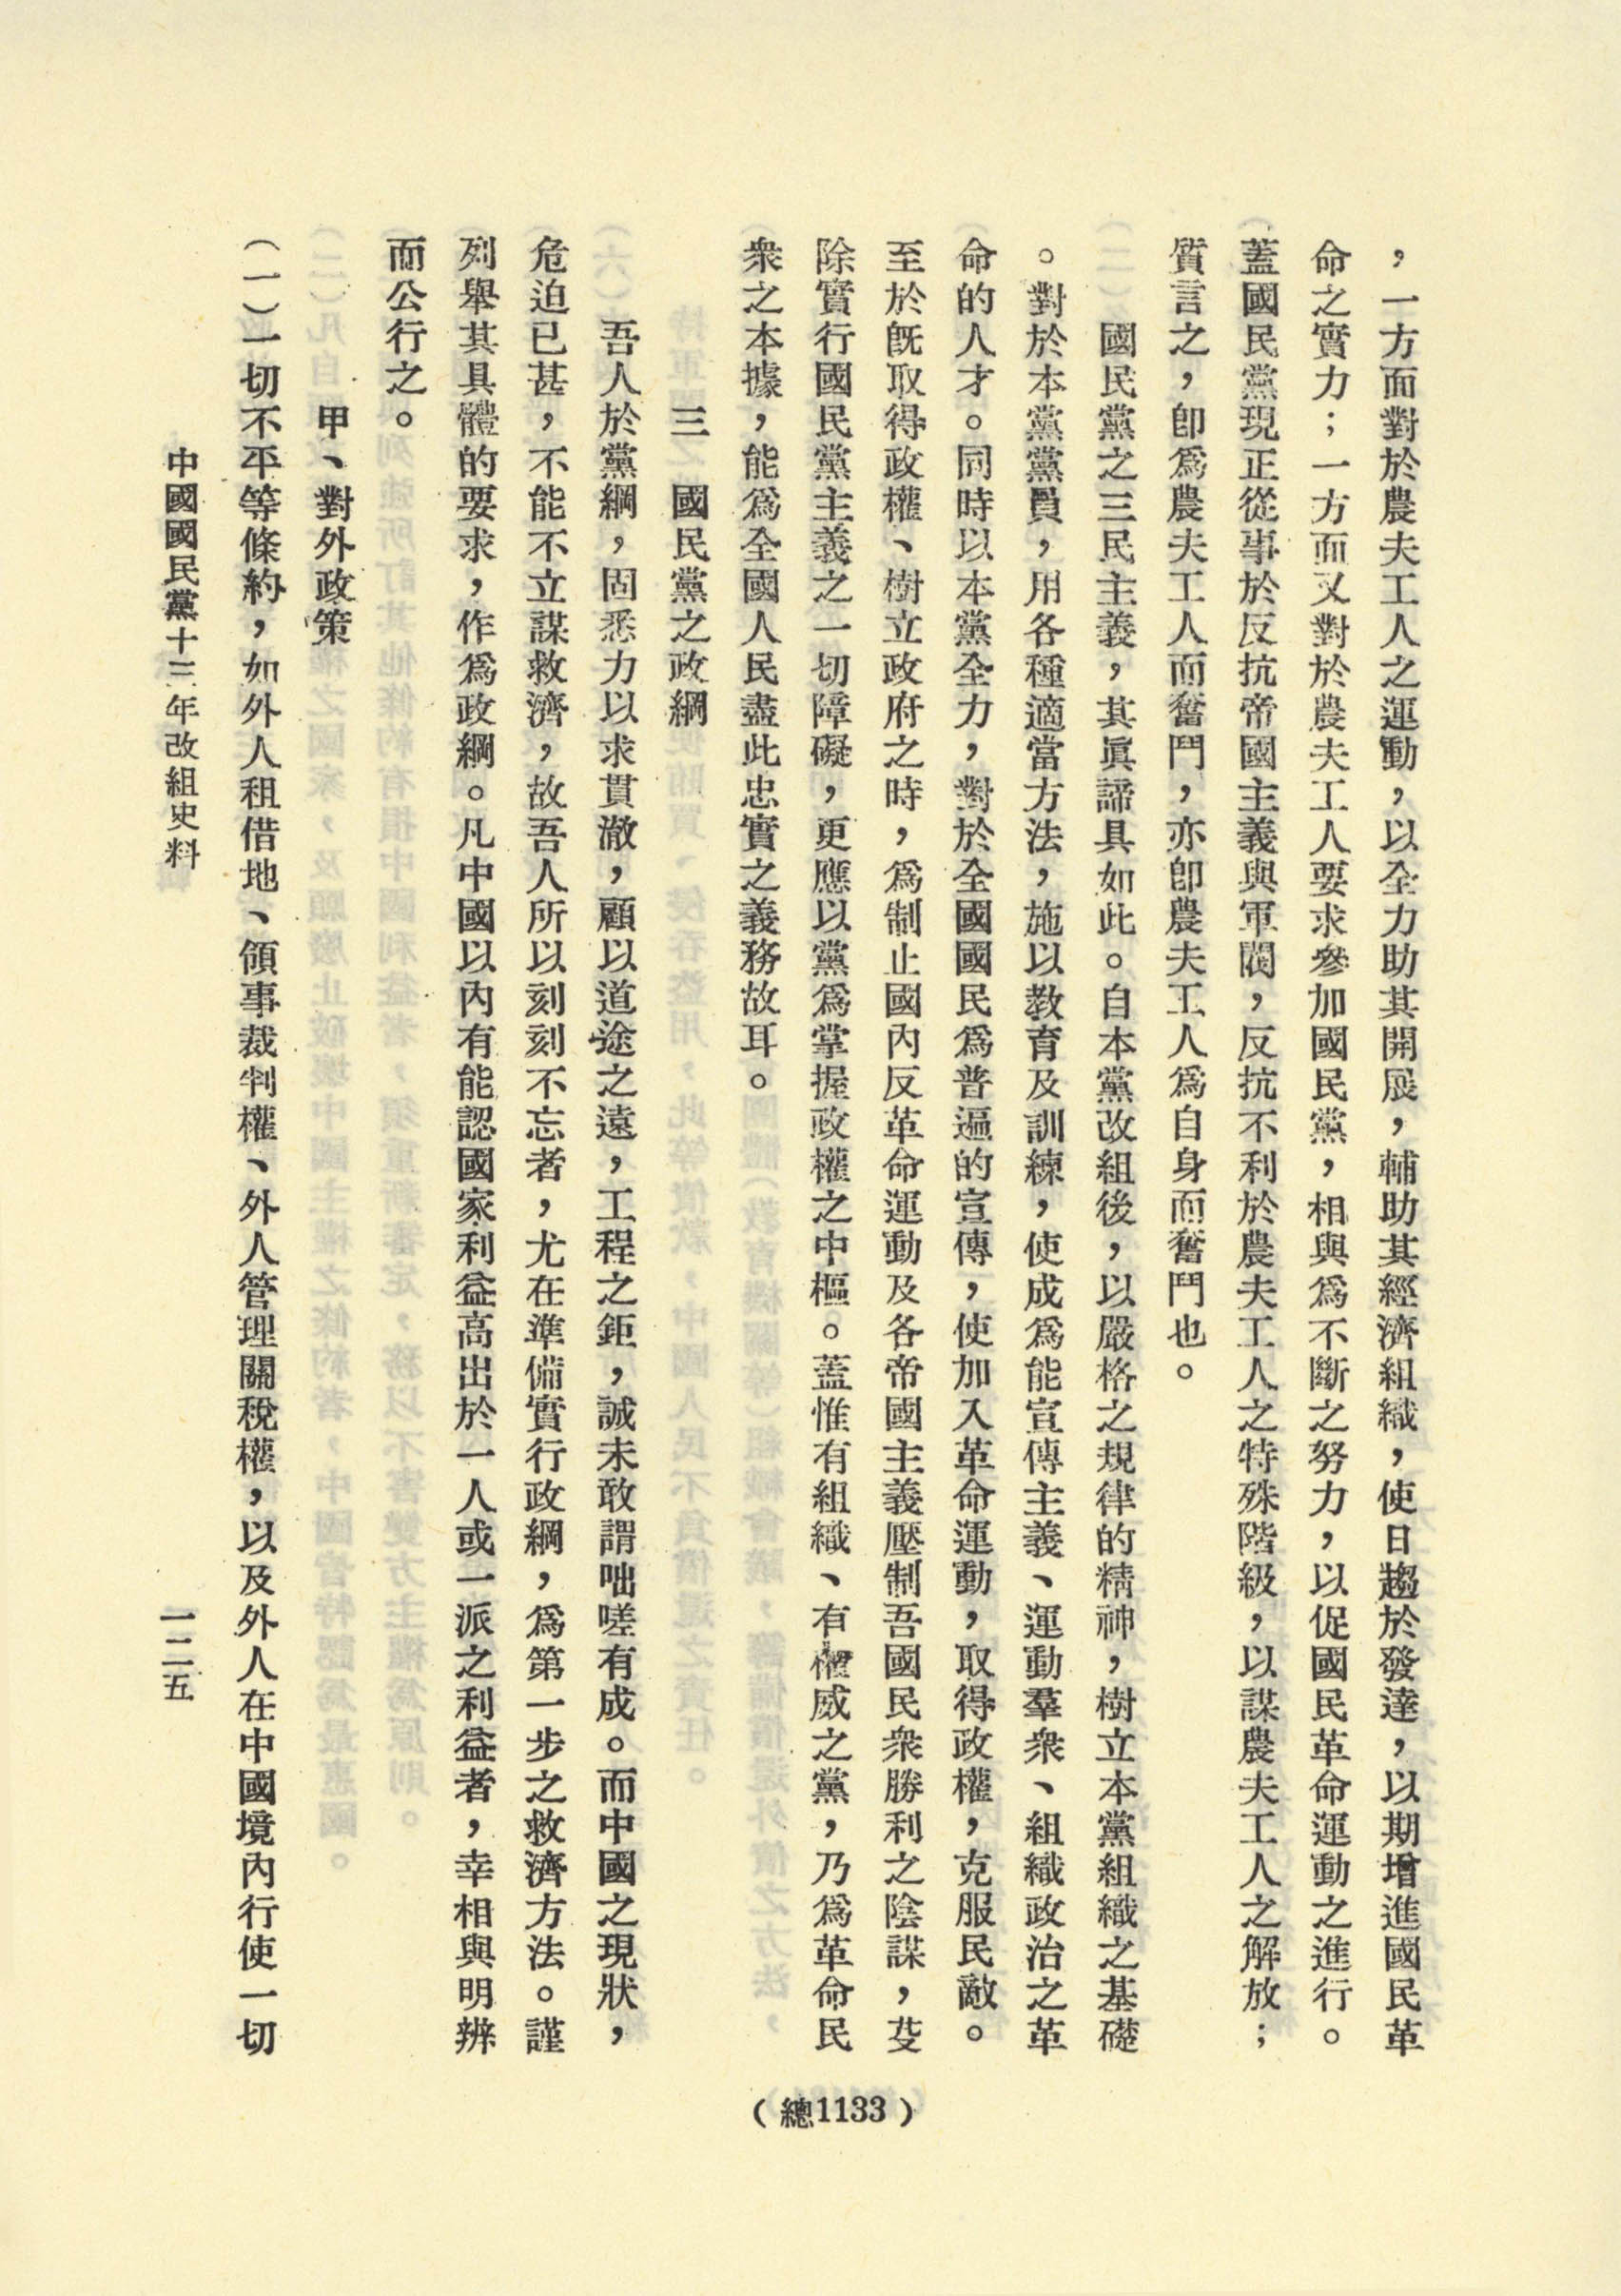 ，一方面對於農夫工人之運動，以全力助其開展，輔助其經濟組織，使日趨於發達，以期增進國民革
命之實力；一方面又對於農夫工人要求參加國民黨，相與爲不斷之努力，以促國民革命運動之進行。
蓋國民黨現正從事於反抗帝國主義與軍閥，反抗不利於農夫工人之特殊階級，以謀農夫工人之解放；
質言之，卽爲農夫工人而奮鬥，亦卽農夫工人爲自身而奮鬥也。
國民黨之三民主義，其眞諦具如此。自本黨改組後，以嚴格之規律的精神，樹立本黨組織之基礎
。對於本黨黨員，用各種適當方法，施以教育及訓練，使成爲能宣傳主義、運動羣衆、組織政治之革
命的人才。同時以本黨全力，對於全國國民爲普遍的宣傳，使加入革命運動，取得政權，克服民敵。
至於旣取得政權、樹立政府之時，爲制止國內反革命運動及各帝國主義壓制吾國民衆勝利之陰謀，芟
除實行國民黨主義之一切障礙，更應以黨爲掌握政權之中樞。蓋惟有組織、有權威之黨，乃爲革命民
衆之本據，能爲全國人民盡此忠實之義務故耳。
三　國民黨之政綱
吾人於黨綱，固悉力以求貫澈，顧以道途之遠，工程之鉅，誠未敢謂咄嗟有成。而中國之現狀，
危迫已甚，不能不立謀救濟，故吾人所以刻刻不忘者，尤在準備實行政綱，爲第一步之救濟方法。謹
列舉其具體的要求，作爲政綱。凡中國以內有能認國家利益高出於一人或一派之利益者，幸相與明辨
而公行之。
甲、對外政策
（一）一切不平等條約，如外人租借地、領事裁判權、外人管理關稅權，以及外人在中國境內行使一切
中國國民黨十三年改組史料
一二五
（總1133）